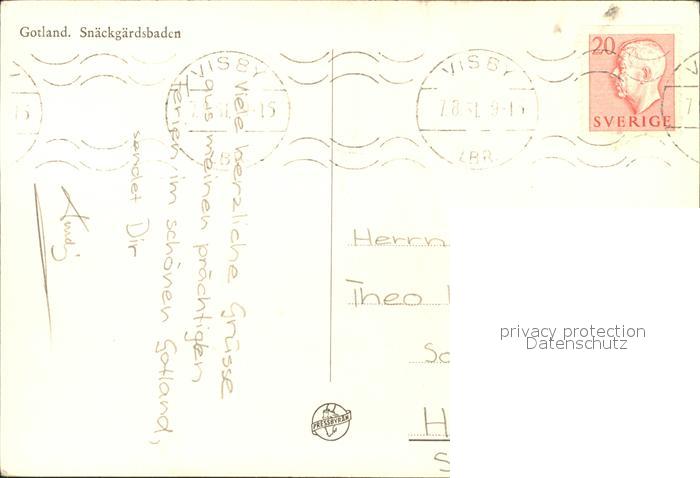 Gotland. Snäckgärdsbaden
VISBY
15
LBR
VISBY
7.8.51. 9-15
LBR
7
20
SVERIGE
Viele herzliche Grüsse
aus meinen prächtigen
Ferien im schönen Gotland,
sendet Dir
Herrn
Theo
H
S
PRESSBYRÅN
privacy protection
Datenschutz